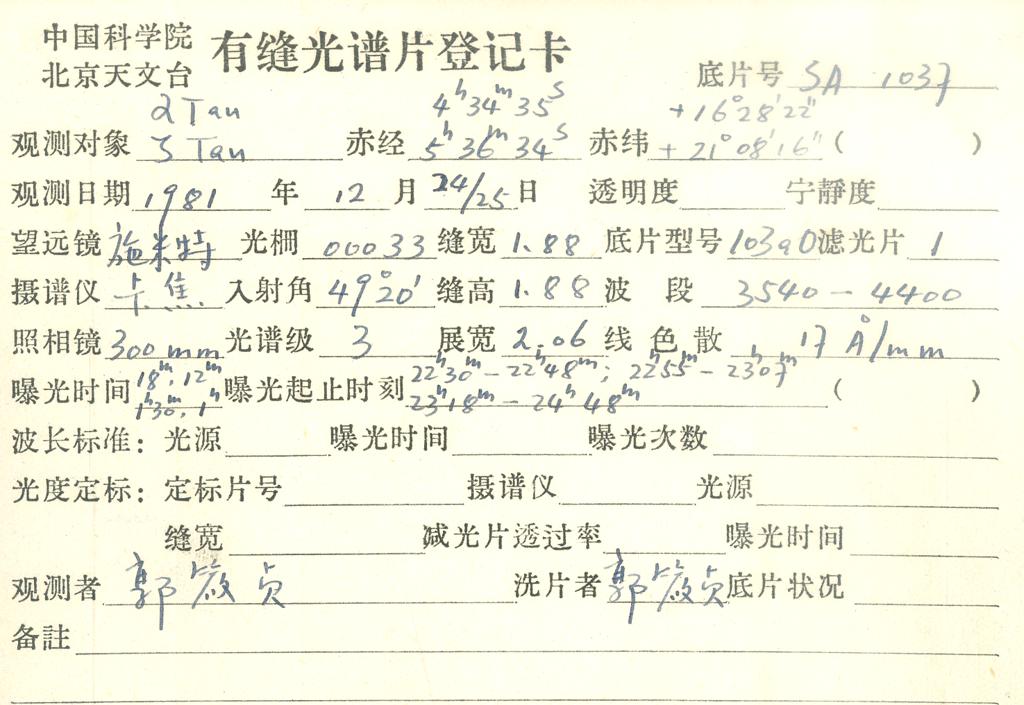 中国科学院
北京天文台
有缝光谱片登记卡
底片号 SA 1037
α Tan 4ʰ34ᵐ35ˢ +16°28′22″
观测对象 ζ Tan 赤经 5ʰ36ᵐ34ˢ 赤纬 +21°08′16″ ( )
观测日期 1981 年 12 月 24/25 日 透明度 宁静度
望远镜 施米特 光栅 00033 缝宽 1.88 底片型号 103aO 滤光片 1
摄谱仪 卡焦 入射角 49°20′ 缝高 1.88 波段 3540-4400
照相镜 300mm 光谱级 3 展宽 2.06 线色散 17 Å/mm
曝光时间 18ᵐ, 12ᵐ 曝光起止时刻 22ʰ30ᵐ-22ʰ48ᵐ; 22ʰ55ᵐ-23ʰ07ᵐ ( )
1ʰ30ᵐ, 23ʰ18ᵐ-24ʰ48ᵐ
波长标准: 光源 曝光时间 曝光次数
光度定标: 定标片号 摄谱仪 光源
缝宽 减光片透过率 曝光时间
观测者 郭 贞 洗片者 郭 贞 底片状况
备註